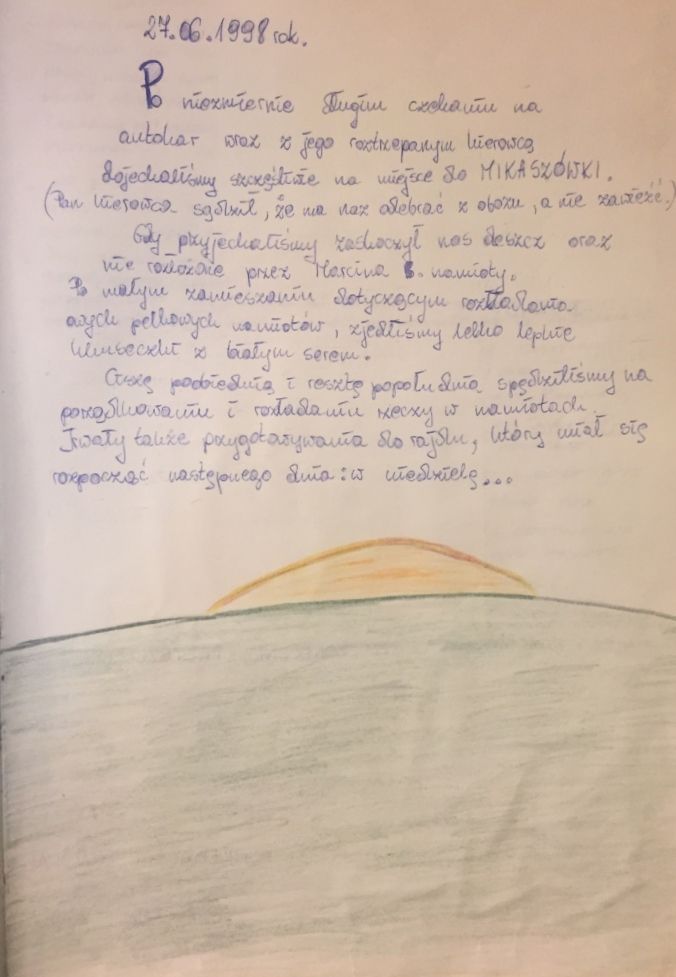 27.06.1998 rok.
Po niezmiernie długim czekaniu na
autokar wraz z jego roztrzepanym kierowcą
dojechaliśmy szczęśliwie na miejsce do MIKASZÓWKI.
(Pan kierowca sądził, że ma nas odebrać z obozu, a nie zawieźć.)
Gdy przyjechaliśmy zaskoczył nas deszcz oraz
nie rozłożone przez Marcina B. namioty.
Po małym zamieszaniu dotyczącym rozkładania
owych pełkowych namiotów, zjedliśmy lekko lepkie
kluseczki z białym serem.
Ciszę pobiednią i resztę popołudnia spędziliśmy na
porządkowaniu i rozkładaniu rzeczy w namiotach.
Trwały także przygotowywania do rajdu, który miał się
rozpocząć następnego dnia: w niedzielę...